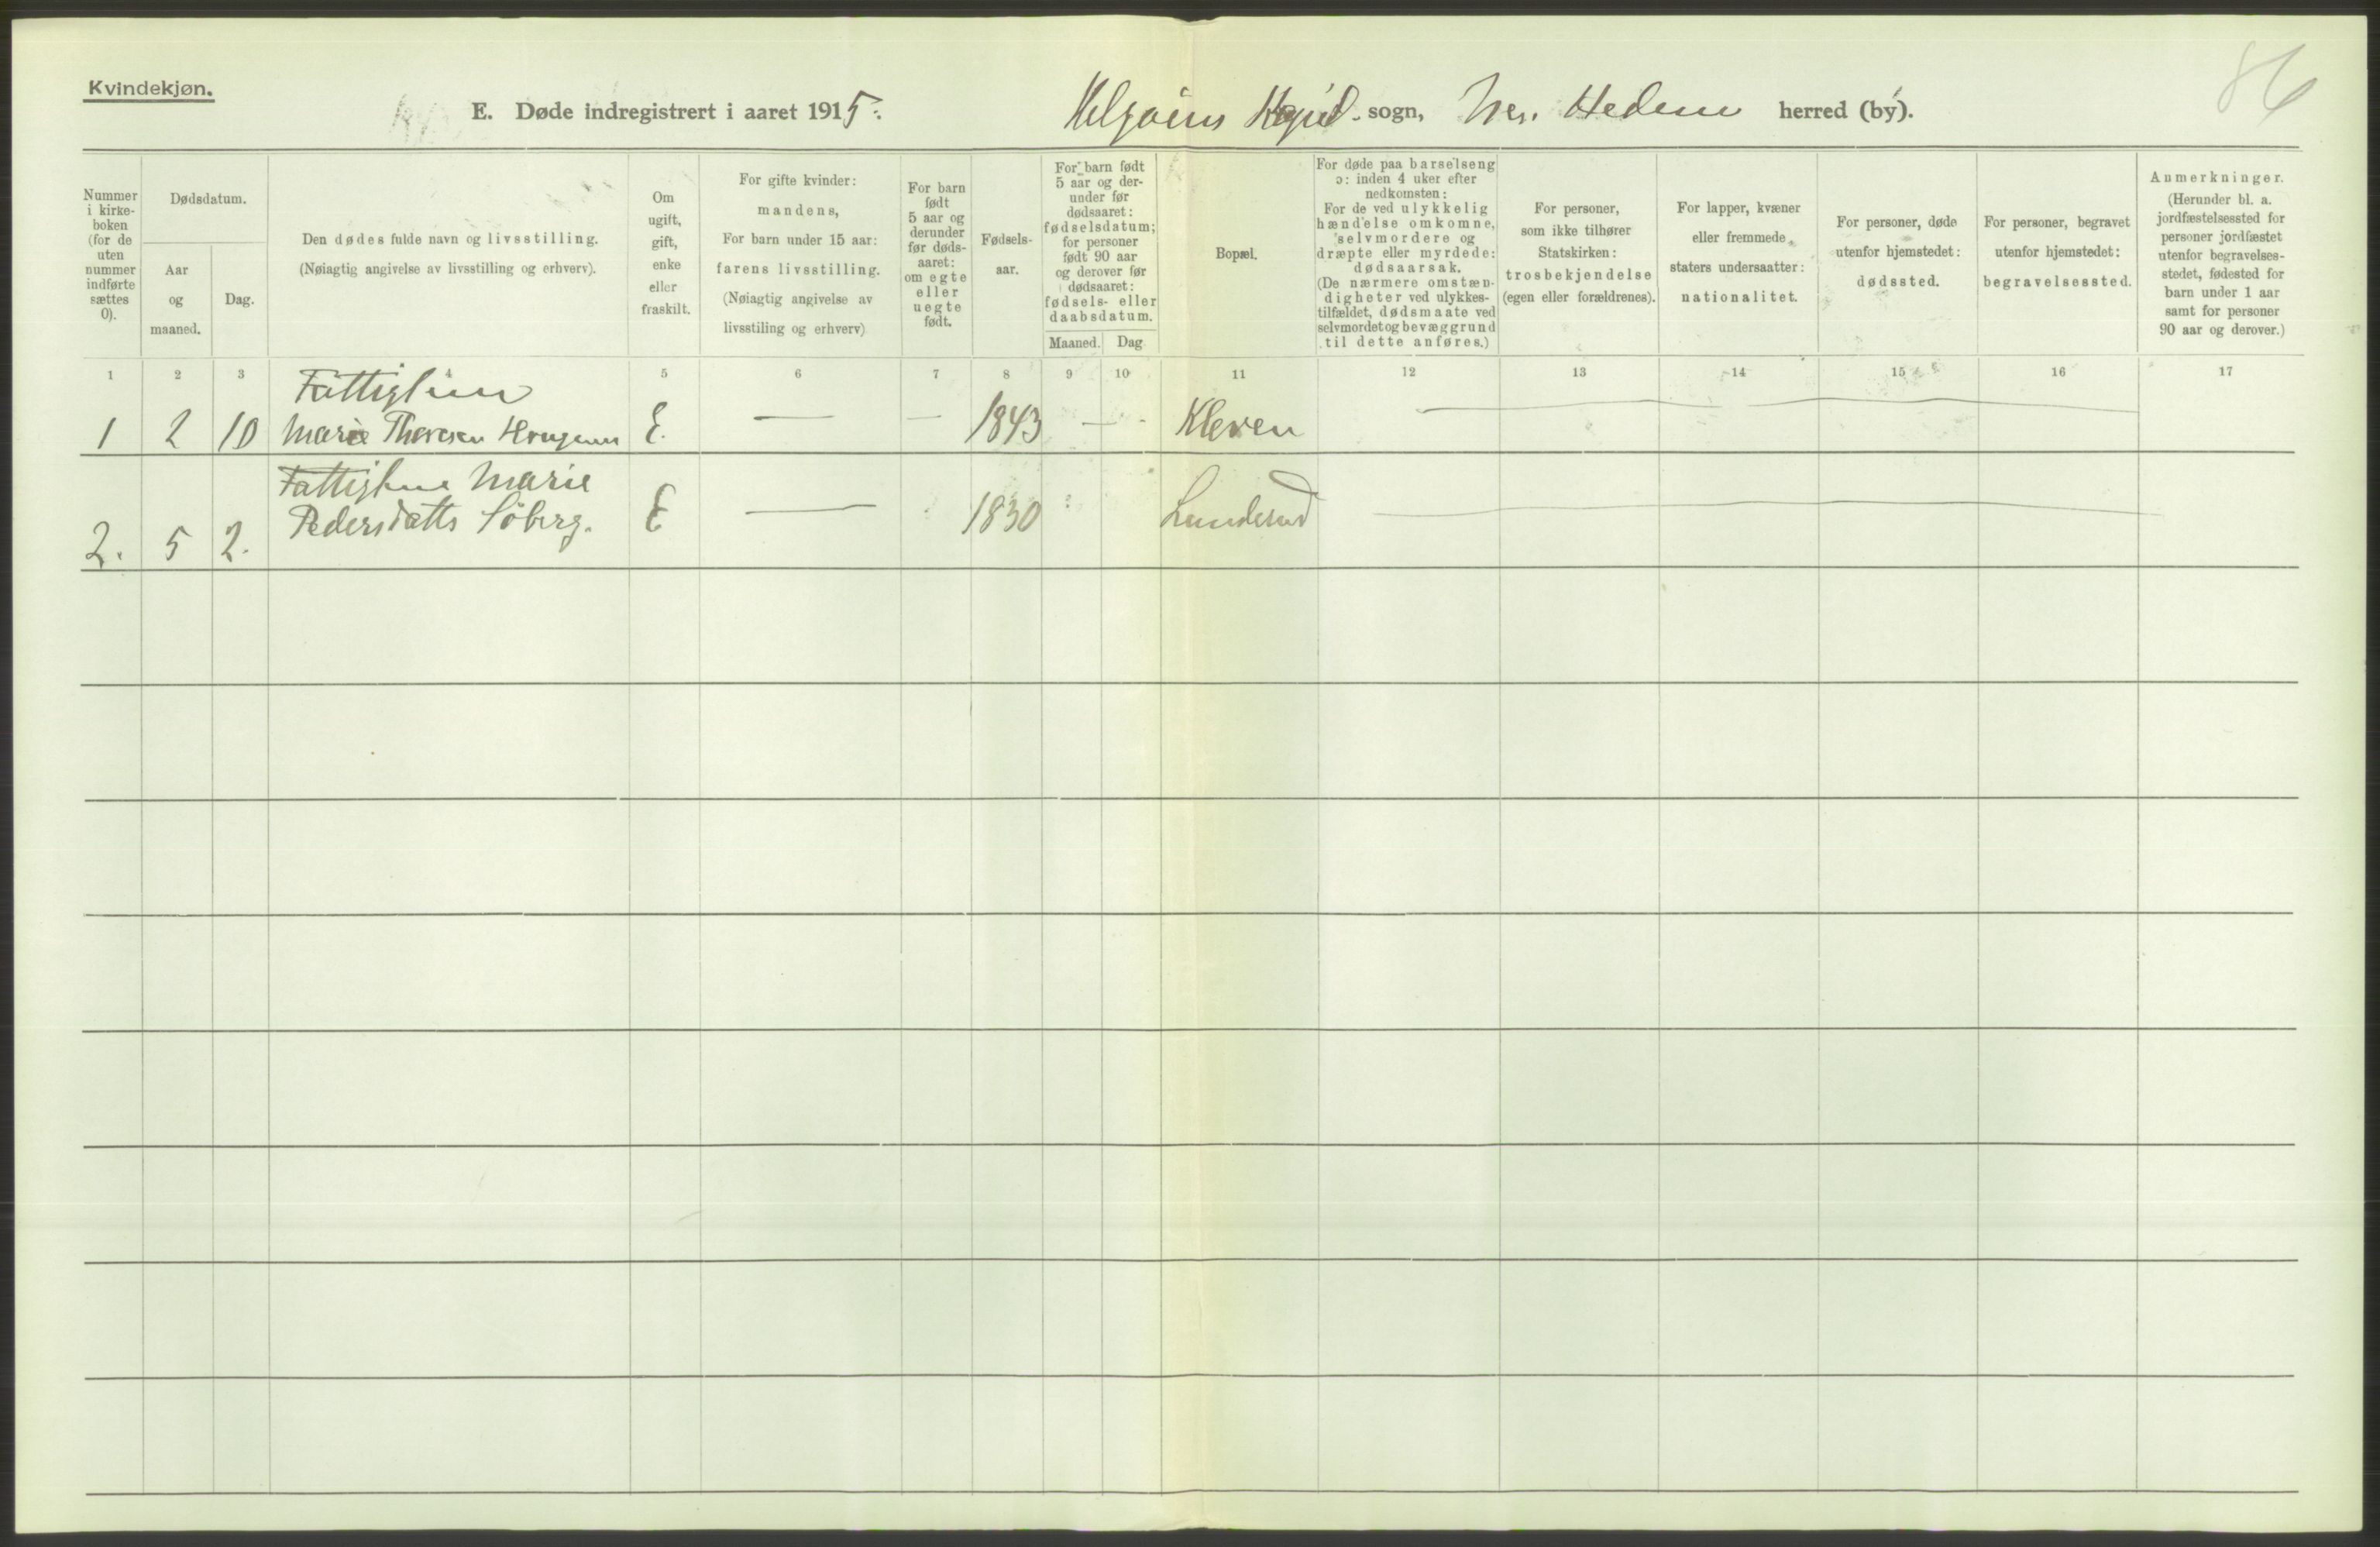 Kvindekjøn.
86
E. Døde indregistrert i aaret 1915. Helgøens Kapel sogn, Nes. Hedem herred (by).
Nummer i kirke- boken (for de uten nummer indførte sættes 0).
Dødsdatum.
Aar og maaned.
Dag.
Den dødes fulde navn og livsstilling.
(Nøiagtig angivelse av livsstilling og erhverv).
Om ugift, gift, enke eller fraskilt.
For gifte kvinder: mandens,
For barn under 15 aar: farens livsstilling.
(Nøiagtig angivelse av livsstiling og erhverv)
For barn født 5 aar og derunder før døds- aaret: om egte eller uegte født.
Fødsels- aar.
For barn født 5 aar og der- under før dødsaaret: fødselsdatum; for personer født 90 aar og derover før dødsaaret: fødsels- eller daabsdatum.
Maaned. Dag
Bopæl.
For døde paa barselseng ɔ: inden 4 uker efter nedkomsten:
For de ved ulykkelig hændelse omkomne, selvmordere og dræpte eller myrdede: dødsaarsak.
(De nærmere omstæn- digheter ved ulykkes- tilfældet, dødsmaate ved selvmordet og bevæggrund til dette anføres.)
For personer, som ikke tilhører Statskirken: trosbekjendelse (egen eller forældrenes).
For lapper, kvæner eller fremmede staters undersaatter: nationalitet.
For personer, døde utenfor hjemstedet: dødssted.
For personer, begravet utenfor hjemstedet: begravelsessted.
Anmerkninger.
(Herunder bl. a. jordfæstelsessted for personer jordfæstet utenfor begravelses- stedet, fødested for barn under 1 aar samt for personer 90 aar og derover.)
1 2 3 4 5 6 7 8 9 10 11 12 13 14 15 16 17
Fattiglem
1 2 10 Marie E. — — 1843 — - Kleven —
Fattiglem Marie
2. 5 2. Pedersdatter Söberg. E — 1830 Lunderud —